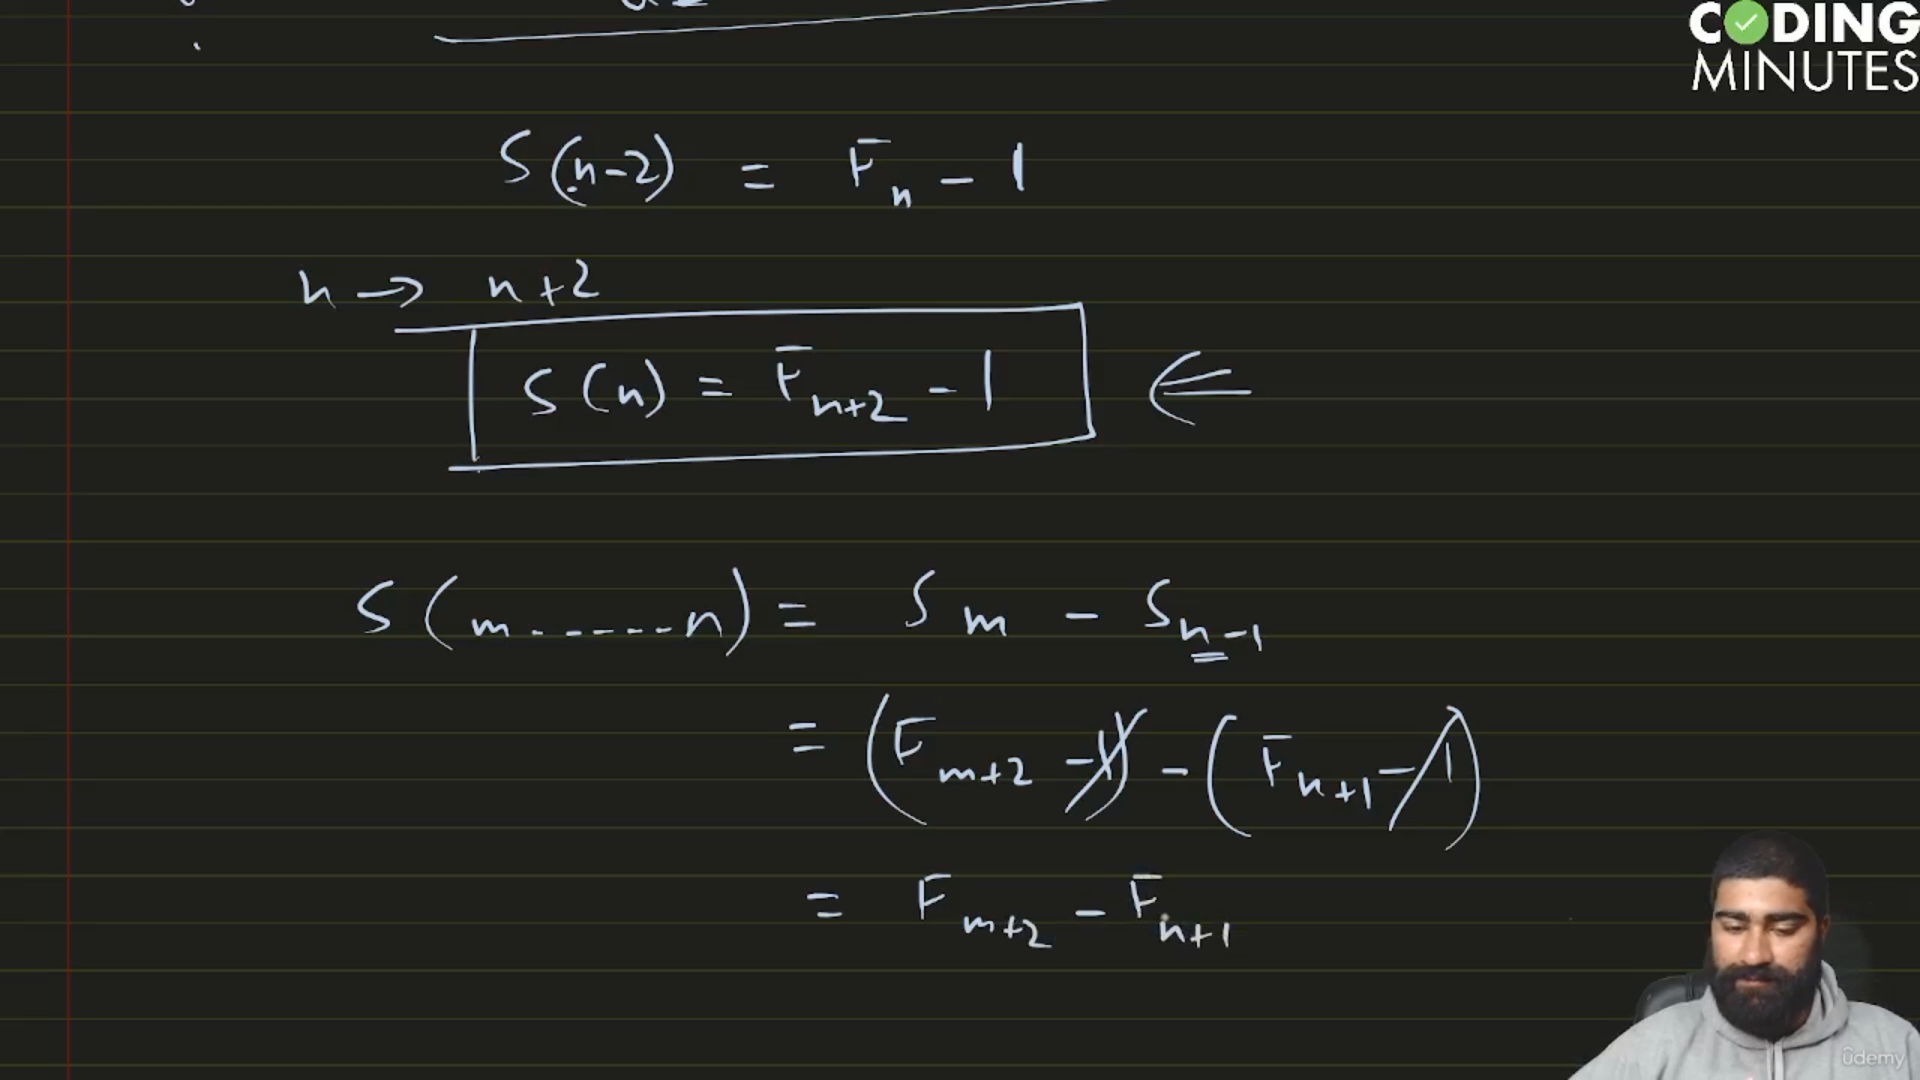 CODING
MINUTES
S(n-2) = Fn - 1
n → n+2
S(n) = Fn+2 - 1
S(m------n) = Sm - Sn-1
= (Fm+2 - 1) - (Fn+1 - 1)
= Fm+2 - Fn+1
ûdemy